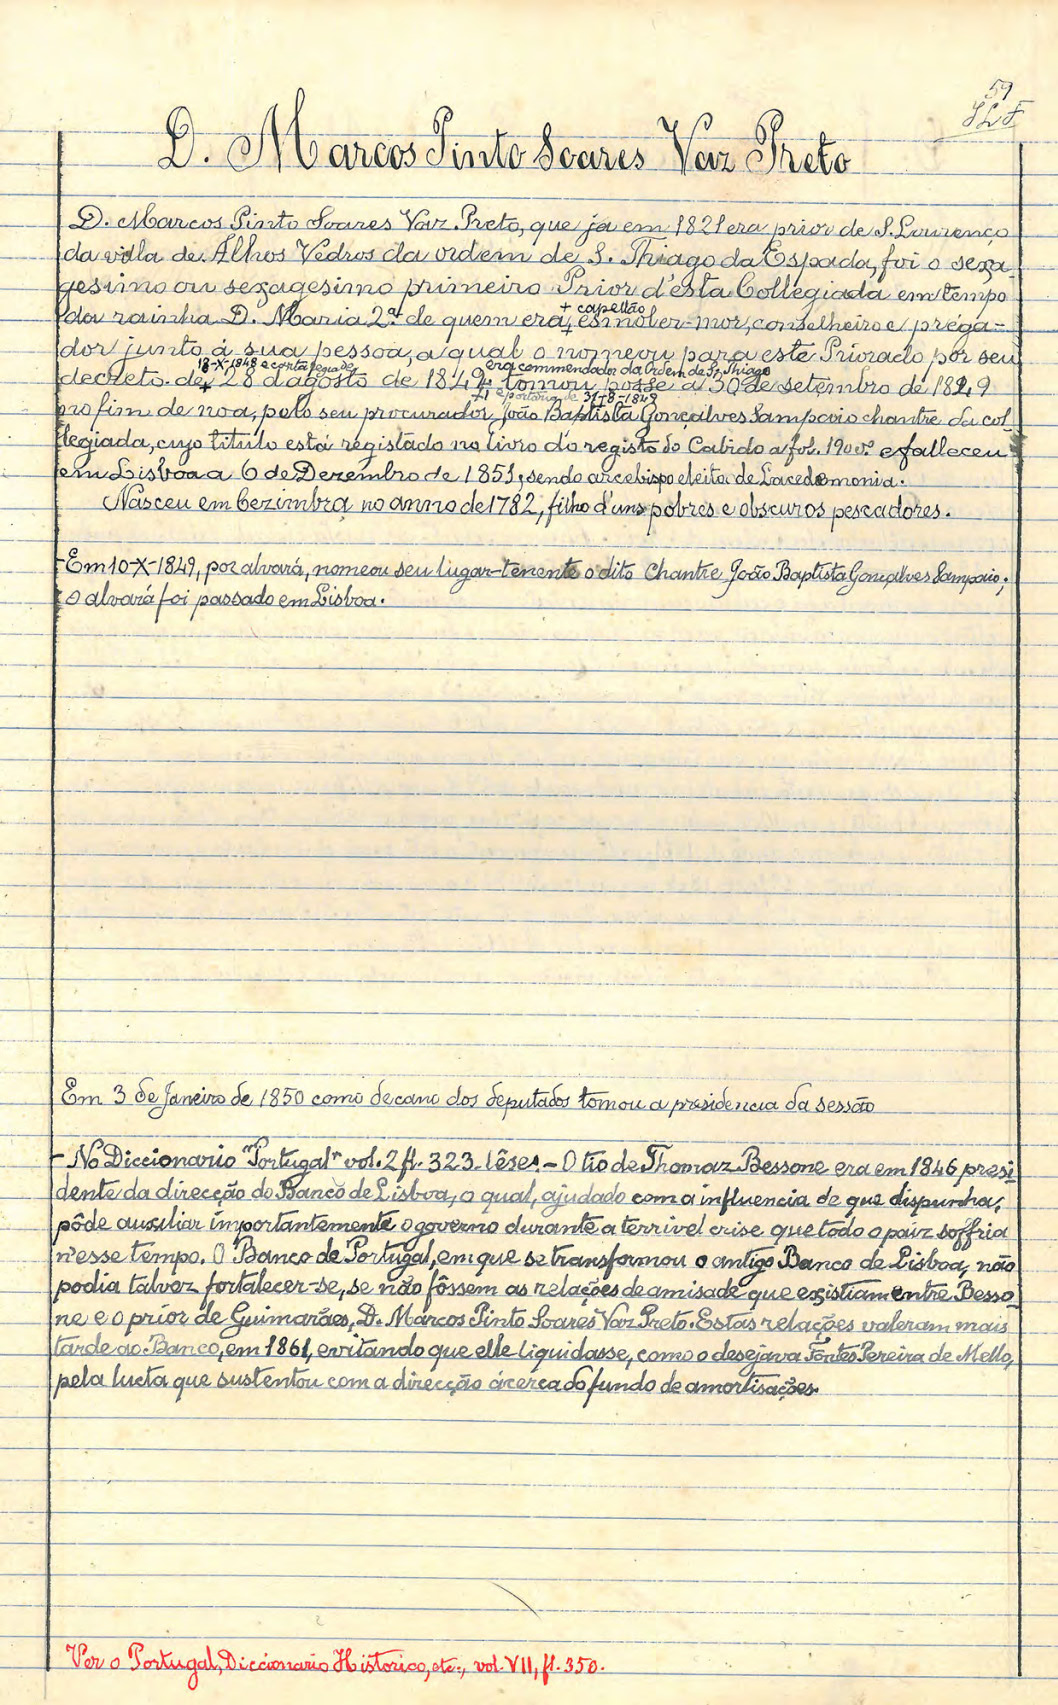 59
D. Marcos Pinto Soares Vaz Preto
D. Marcos Pinto Soares Vaz Preto, que ja em 1821 era prior de S. Lourenço
da villa de Alhos Vedros da ordem de S. Thiago da Espada, foi o sexa-
gesimo ou sexagesimo primeiro Prior d'esta Collegiada em tempo
+ capellão
da rainha D. Maria 2ª de quem era + esmoler-mor, conselheiro e préga-
dor junto á sua pessoa, a qual o nomeou para este Priorado por seu
18-X-1848 e carta regia de
era commendador da Ordem de S. Thiago
decreto de + 28 d'agosto de 1849 tomou posse a 30 de setembro de 1849
+1 e portaria de 31-8-1849
no fim de noa, pelo seu procurador, João Baptista Gonçalves Sampaio chantre da col-
legiada, cujo titulo está registado no livro do registo do Cabido a fol. 190 vº e falleceu
em Lisboa a 6 de Dezembro de 1851, sendo arcebispo eleito de Lacedemonia.
Nasceu em Cezimbra no anno de 1782, filho d'uns pobres e obscuros pescadores.
- Em 10-X-1849, por alvará, nomeou seu lugar-tenente o dito Chantre João Baptista Gonçalves Sampaio;
o alvará foi passado em Lisboa.
Em 3 de Janeiro de 1850 como decano dos deputados tomou a presidencia da sessão
- No Diccionario "Portugal" vol. 2 fl. 323. lêse: - O tio de Thomaz Bessone era em 1846 presi-
dente da direcção do Banco de Lisboa, o qual, ajudado com a influencia de que dispunha,
pôde auxiliar importantemente o governo durante a terrivel crise que todo o paiz soffria
n'esse tempo. O Banco de Portugal, em que se transformou o antigo Banco de Lisboa, não
podia talvez fortalecer-se, se não fôssem as relações de amisade que existiam entre Besso-
ne e o prior de Guimarães, D. Marcos Pinto Soares Vaz Preto. Estas relações valeram mais
tarde ao Banco, em 1861, evitando que elle liquidasse, como o desejava Fontes Pereira de Mello,
pela lucta que sustentou com a direcção ácerca do fundo de amortisações.
Ver o Portugal, Diccionario Historico, etc., vol. VII, fl. 350.